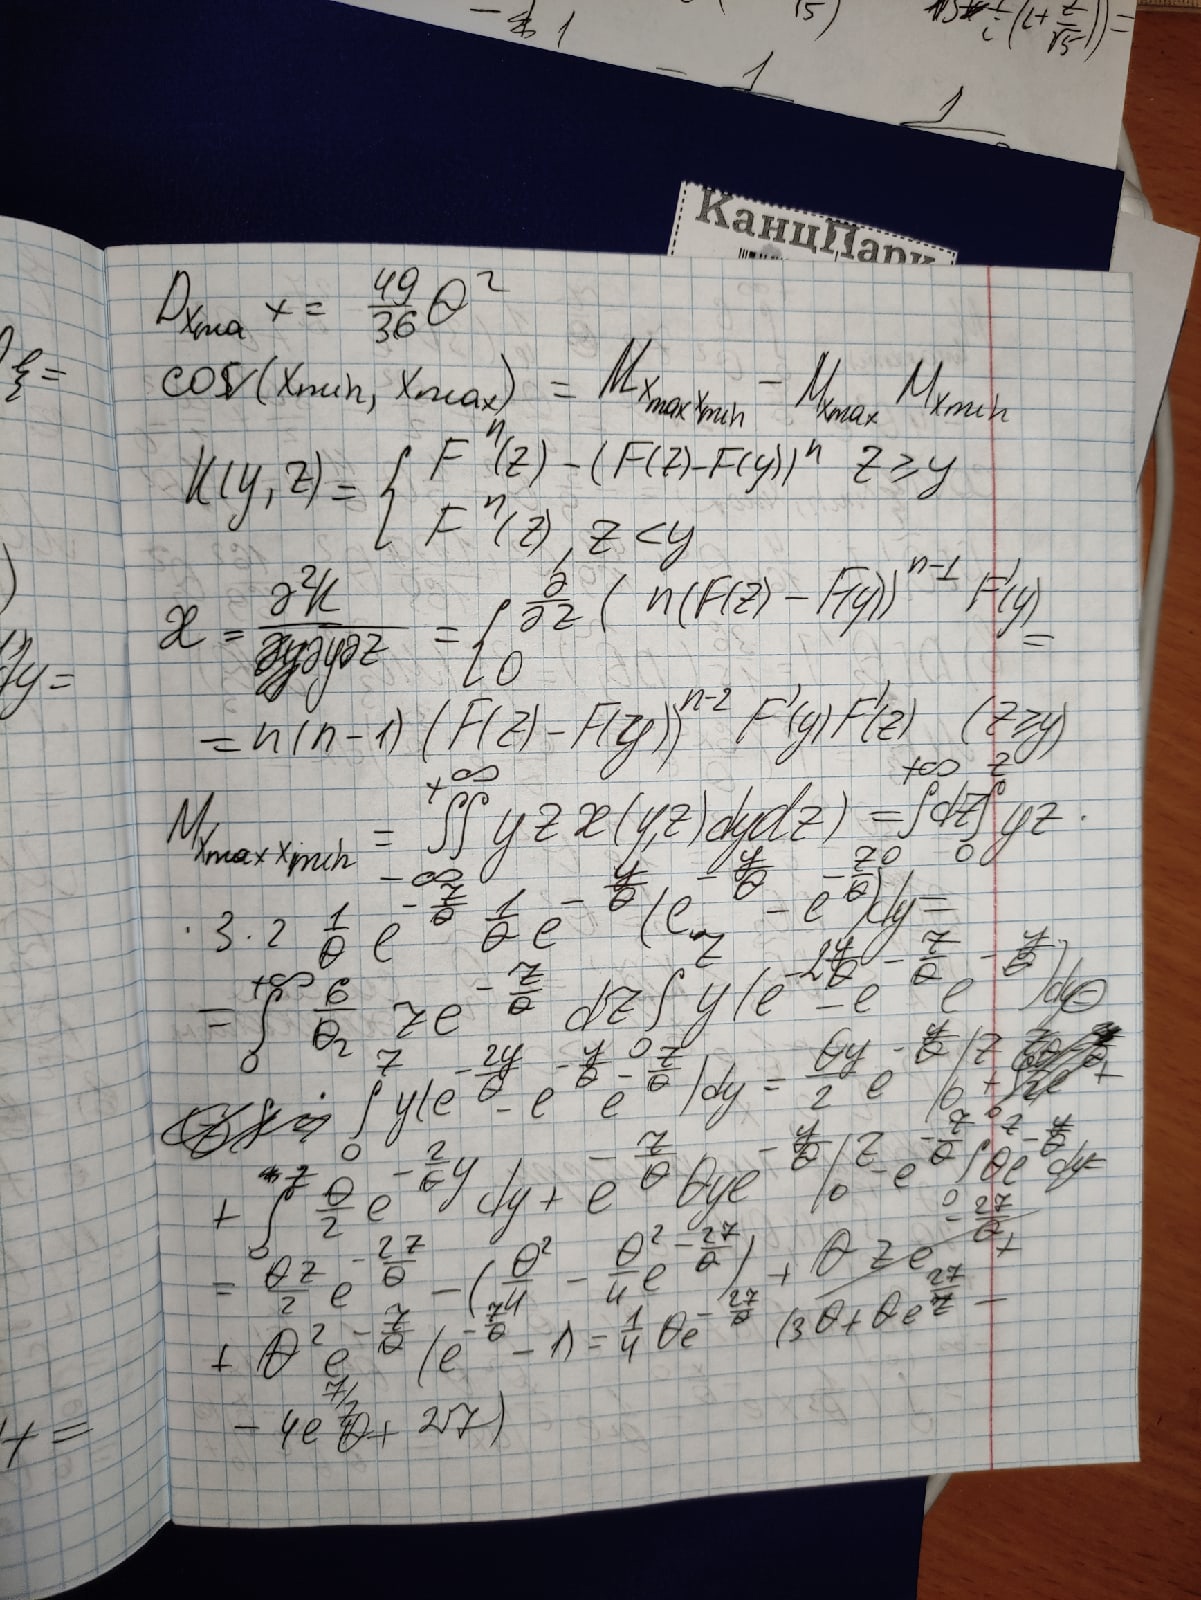 КанцПарк
D_{Xmax} x = 49/36 θ²
cov(Xmin, Xmax) = M_{Xmax Xmin} - M_{Xmax} M_{Xmin}
K(y, z) = { Fⁿ(z) - (F(z) - F(y))ⁿ z ≥ y
Fⁿ(z), z < y
æ = ∂²K / ∂y∂z = { ∂/∂z ( n(F(z) - F(y))ⁿ⁻¹ F'(y) =
0
= n(n-1) (F(z) - F(y))ⁿ⁻² F'(y) F'(z) (z ≥ y)
M_{Xmax Xmin} = ∫∫_{-∞}^{+∞} y z æ(y,z) dydz) = ∫_0^{+∞} dz ∫_0^z yz ·
· 3 · 2 1/θ e^{-z/θ} 1/θ e^{-y/θ} (e^{-y/θ} - e^{-z/θ}) dy =
= ∫_0^{+∞} 6/θ² z e^{-z/θ} dz ∫_0^z y (e^{-2y/θ} - e^{-z/θ} e^{-y/θ}) dy =
∫_0^z y(e^{-2y/θ} - e^{-y/θ} e^{-z/θ}) dy = θy/2 e^{-y/θ} |_0^z +
+ ∫_0^z θ/2 e^{-2/θ y} dy + e^{-z/θ} θye^{-y/θ} |_0^z - e^{-z/θ} ∫_0^z θe^{-y/θ} dy =
= θz/2 e^{-2z/θ} - (θ²/4 - θ²/4 e^{-2z/θ}) + θ z e^{-2z/θ} +
+ θ² e^{-z/θ} (e^{-z/θ} - 1) = 1/4 θe^{-2z/θ} (3θ + θe^{2z/z} -
- 4e^{z/θ} θ + 2z)